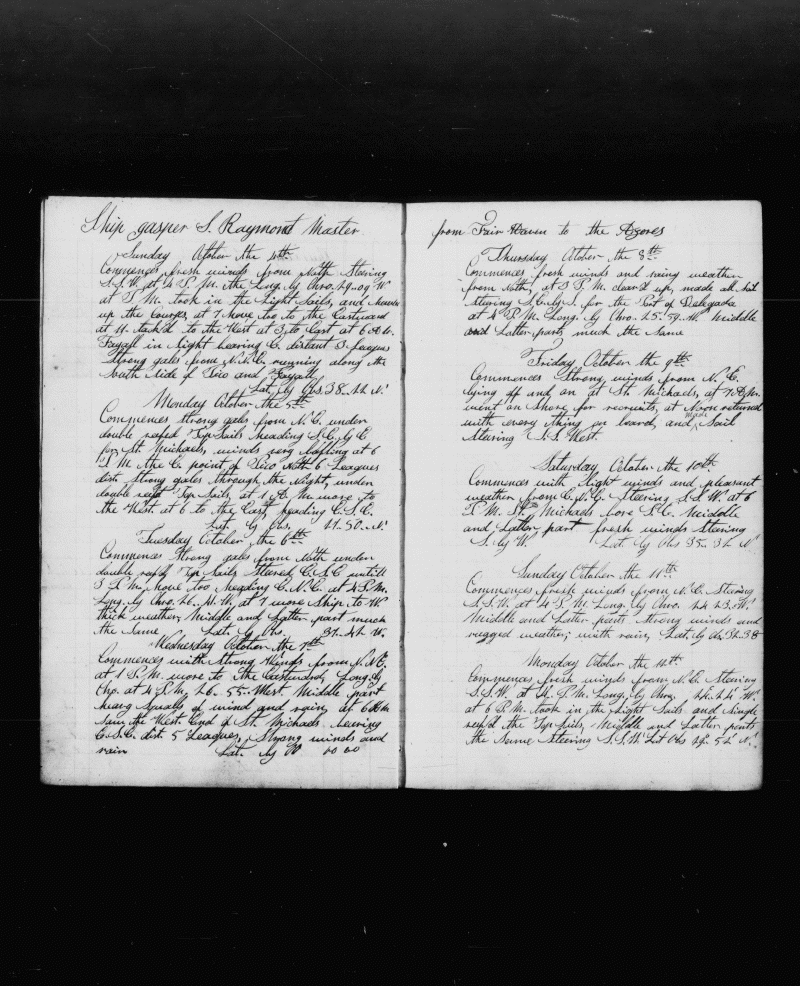 Ship gasper S. Raymond Master
Sunday October the 4th
Commences fresh winds from North Steering
S.S.W. at 4 P.M. the Long. by Chro. 29..09 W
at P.M. took in the Light Sails, and
up the Courses, at 7 hove too to the Eastward
at 11 tack'd to the West at 3, to East at 6 A.M.
Fayall in Sight bearing E. distant 3 Leagues
Strong gales from N.N.E. running along the
South Side of Pico and Fayall,
Lat. by Obs. 38..22 N.
Monday October the 5th
Commences strong gales from N.E. under
double reefed Top Sails heading S.E. by E
for St. Michaels, winds very baffling at 6
P.M the E. point of Pico North 6 Leagues
dist. Strong gales through the Night, under
double reef Top Sails, at 1 A.M. wore to
the West, at 6 to the East heading E.S.E.
Lat. by Obs. 50.. N.
Tuesday October the 6th
Commences Strong gales from North under
double reef Top Sails Steered E.S.E untill
3 P.M. hove too heading E.N.E. at 4 P.M.
Long. by Chro. 26.. W. at 7 wore Ship to W
thick weather, Middle and Latter part much
the Same Lat. by Obs. 37..42 N.
Wednesday October the 7th
Commences with Strong Winds from N.NE.
at 1 P.M. wore to the Eastward, Long. by
Chro. at 4 P.M. 26.. 55. West Middle part
heavy Squalls of wind and rain, at 6 A.M
Saw the West End of St. Michaels bearing
E.S.E. dist. 5 Leagues, Strong winds and
rain Lat. by 00 00 00
from Fair Haven to the Azores
Thursday October the 8th
Commences fresh winds and rainy weather
from North, at 3 P.M. clear'd up, made all Sail
Steering S.E. by S. for the Port of Delegada
at 4 P.M. Long. by Chro. 25..59..W. Middle
and Latter parts much the Same
Friday October the 9th
Commences Strong winds from N. E.
lying off and on at St. Michaels, at 7 A.M.
went on Shore for recruits, at Noon returned
with every thing on board, and made Sail
Steering S.S. West.
Saturday October the 10th
Commences with light winds and pleasant
weather from E.N.E. Steering S.S.W. at 6
P.M. St. Michaels bore S.E. Middle
and Latter part fresh winds Steering
S. by W. Lat. by Obs 35..32 N
Sunday October the 11th
Commences fresh winds from N.E. Steering
S.S.W. at 4 P.M. Long. by Chro. 24 23..W.
Middle and Latter parts strong winds and
rugged weather, with rain, Lat. by Obs 32.38
Monday October the 12th
Commences fresh winds from N.E. Steering
S.S.W. at 4. P.M. Long. by Chro. 24..24' W.
at 6 P.M. took in the Light Sails and Single
reef'd the Top Sails, Middle and Latter parts
the Same Steering S.S.W. Lat Obs 29.. 52' N.